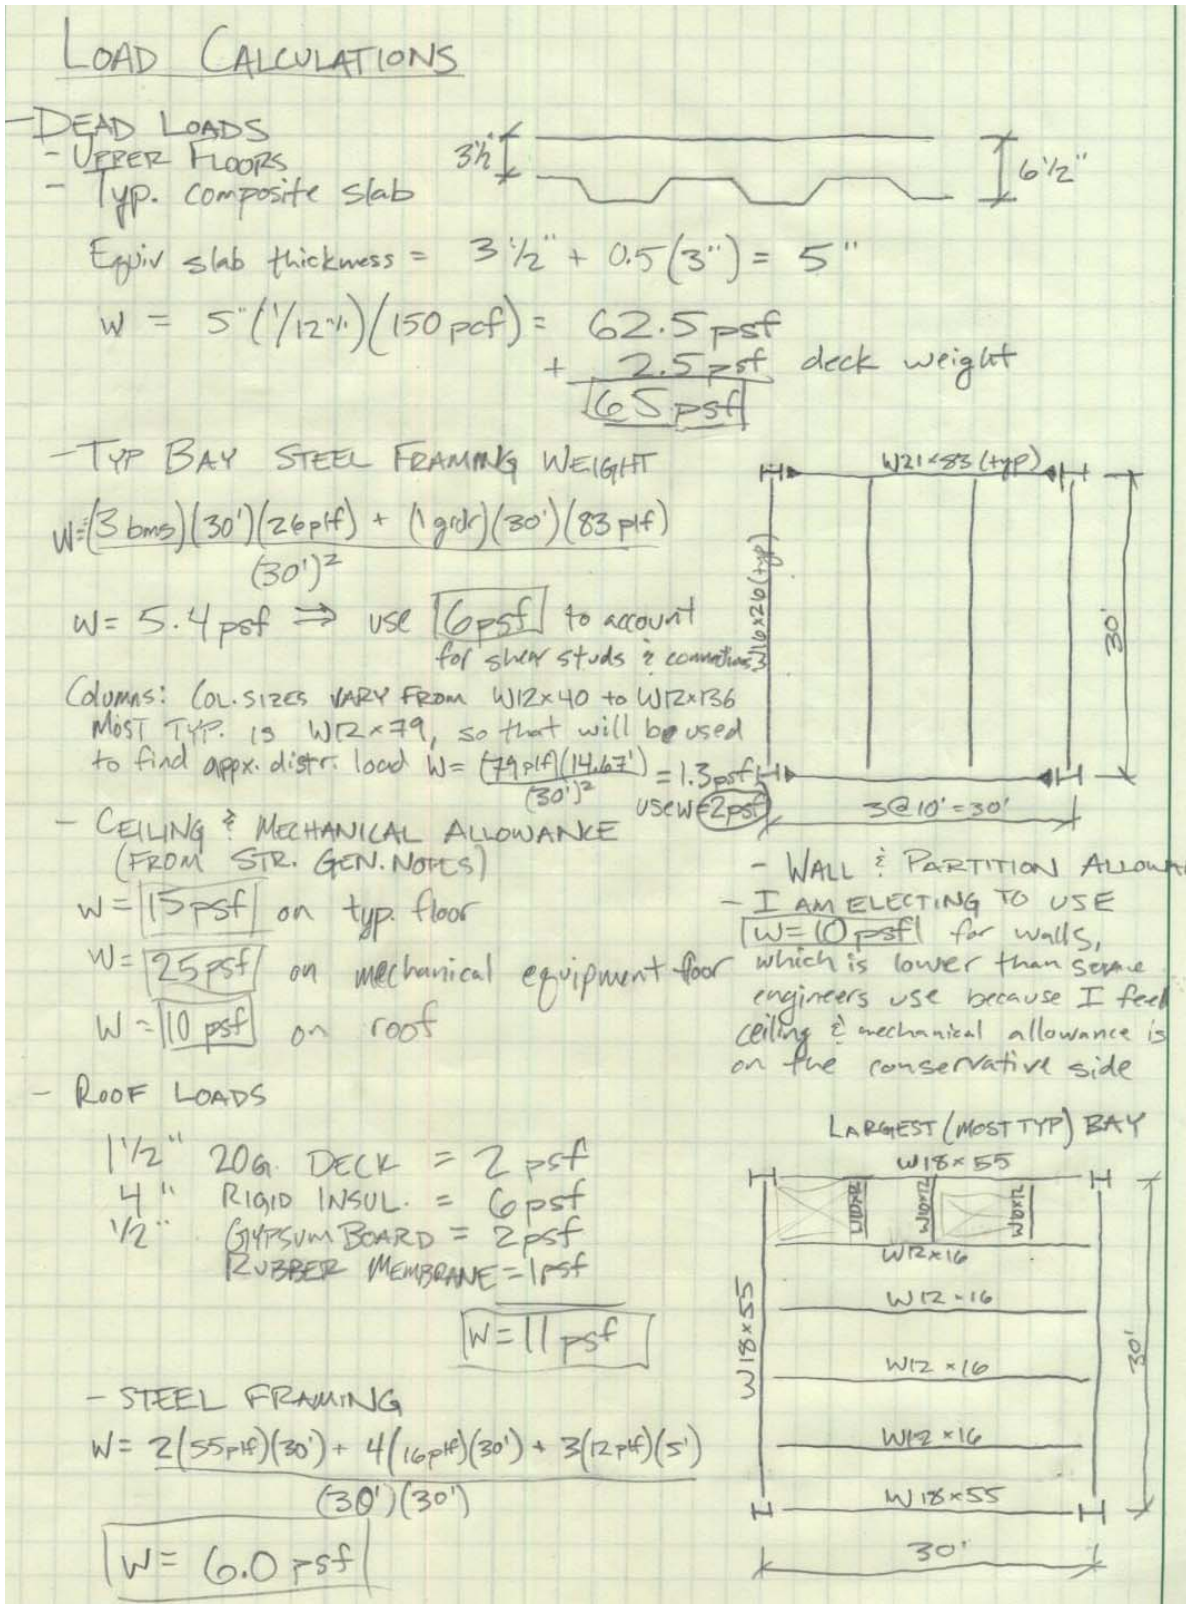 LOAD CALCULATIONS
- DEAD LOADS
- UPPER FLOORS
- Typ. composite slab
3½"
6½"
Equiv slab thickness = 3½" + 0.5(3") = 5"
W = 5"(1/12"/')(150 pcf) = 62.5 psf
+ 2.5 psf deck weight
65 psf
- TYP BAY STEEL FRAMING WEIGHT
W = (3 bms)(30')(26 plf) + (1 grdr)(30')(83 plf)
(30')²
W = 5.4 psf ⇒ use 6 psf to account
for shear studs & connections
W21×83 (typ)
W16×26 (typ)
30'
3@10'=30'
Columns: COL. SIZES VARY FROM W12×40 to W12×136
MOST TYP. is W12×79, so that will be used
to find appx. distr. load W = (79 plf)(14.67') = 1.3 psf
(30')²
use W=2psf
- CEILING & MECHANICAL ALLOWANCE
(FROM STR. GEN. NOTES)
W = 15 psf on typ. floor
W = 25 psf on mechanical equipment floor
W = 10 psf on roof
- WALL & PARTITION ALLOWA
- I AM ELECTING TO USE
W=10 psf for walls,
which is lower than some
engineers use because I feel
ceiling & mechanical allowance is
on the conservative side
- ROOF LOADS
1½" 20G. DECK = 2 psf
4" RIGID INSUL. = 6 psf
½" GYPSUM BOARD = 2 psf
RUBBER MEMBRANE = 1 psf
W = 11 psf
- STEEL FRAMING
W = 2(55 plf)(30') + 4(16 plf)(30') + 3(12 plf)(5')
(30')(30')
W = 6.0 psf
LARGEST (MOST TYP) BAY
W18×55
W10×12
W10×12
W10×12
W12×16
W12×16
W12×16
W12×16
W18×55
W18×55
30'
30'